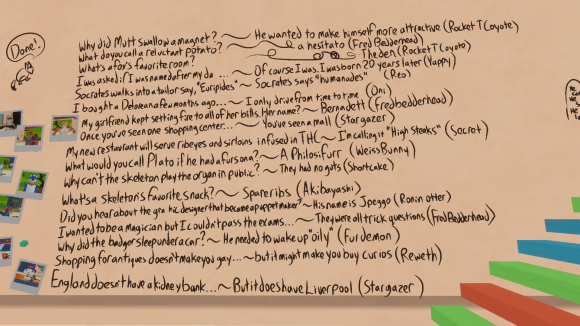 Done!
Why did Mutt swallow a magnet? ~ He wanted to make himself more attractive (Rocket T Coyote)
What do you call a reluctant potato? ~ a hesitato (Fred Bedderhead)
What's a for's favorite room? ~ The den (Rocket T Coyote)
I was asked if I was named after my da ... ~ Of course I was. I was born 20 years later (Yappy)
Socrates walks into a tailor say, "Euripides" ~ Socrates says "humanudes" (Reo)
I bought a Delorean a few months ago... ~ I only drive from time to time (Oni)
My girlfriend kept setting fire to all of her bills. Her name? ~ Bernadett (Fredbedderhead)
Once you've seen one shopping center... ~ You've seen a mall (Stargazer)
My new restaurant will serve ribeyes and sirloins infused in THC ~ I'm calling it "High Steaks" (Secrot)
What would you call Plato if he had a fursona? ~ A Philosifurr (WeissBunny)
Why can't the skeleton play the organ in public? ~ They had no guts (Shortcake)
What's a skeleton's favorite snack? ~ Spare ribs (Akibayashi)
Did you hear about the gra hic designer that became a puppet maker? ~ His name is Jpeggo (Ronin otter)
I wanted to be a magician but I couldn't pass the exams... ~ They were all trick questions (Fred Bedderhead)
Why did the badger sleep under a car? ~ He needed to wake up "oily" (Fur demon)
Shopping for antiques doesn't make you gay... ~ but it might make you buy curios (Reweth)
England doesn't have a kidney bank... ~ But it does have Liverpool (Stargazer)